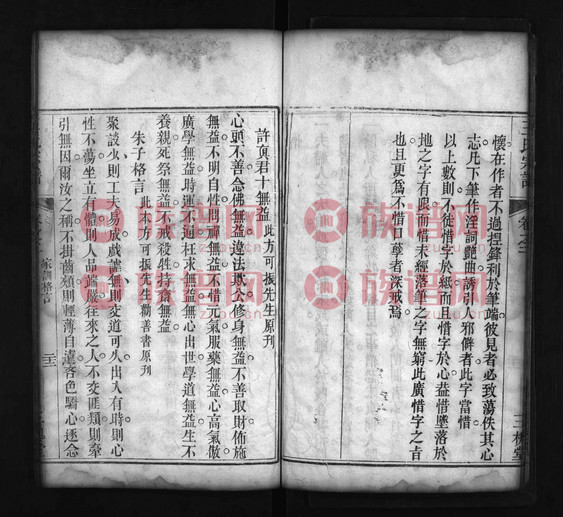 王氏宗譜
卷之三
懷在作者不過捏鋒利於筆端彼見者必致蕩佚其心
志凡下筆作淫詞艷曲誘引人邪僻者此字當惜
以上數則不徒惜字於紙而且惜字於心益惜墮落於
地之字有限而惜未經落筆之字無窮此廣惜字之旨
也且更為不惜口孽者深戒焉
許真君十無益 此方可振先生原刊
心頭不善念佛無益違法欺公修身無益不善取財佈施
無益不明自性問禪無益不惜元氣服藥無益心高氣傲
廣學無益時運不通枉求無益無心出世學道無益生不
養親死祭無益不戒殺牲持齋無益
朱子格言 此本方可振先生勸善書原刊
聚談少則工夫易成戲謔無則交道可久出入有時則心
性不蕩坐立有體則人品端嚴往來之人不交匪類則牽
引無因爾汝之稱不掛齒頰則輕薄自遠客色驕心逐念
家訓格言
族譜網